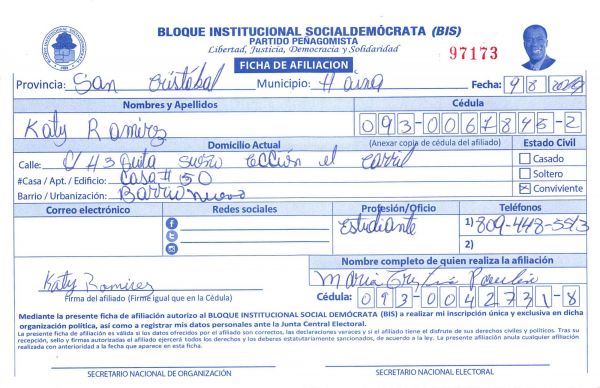 BLOQUE INSTITUCIONAL SOCIALDEMÓCRATA (BIS)
PARTIDO PEÑAGOMISTA
Libertad, Justicia, Democracia y Solidaridad
97173
FICHA DE AFILIACION
Provincia: San Cristóbal Municipio: Haina Fecha: 9 8
Nombres y Apellidos Cédula
Katy Ramirez 093-0067845-2
Domicilio Actual (Anexar copia de cédula del afiliado) Estado Civil
Calle: C/ H 3 el Carril Casado
#Casa / Apt. / Edificio: Casa # 50 Soltero
Barrio / Urbanización: Barrio nuevo Conviviente
Correo electrónico Redes sociales Profesión/Oficio Teléfonos
Estudiante 1) 809-448-5513
2)
Nombre completo de quien realiza la afiliación
Katy Ramirez Maria Paulin
Firma del afiliado (Firme igual que en la Cédula) Cédula: 093-0042731-8
Mediante la presente ficha de afiliación autorizo al BLOQUE INSTITUCIONAL SOCIAL DEMÓCRATA (BIS) a realizar mi inscripción única y exclusiva en dicha
organización política, así como a registrar mis datos personales ante la Junta Central Electoral.
La presente ficha de afiliación es válida si los datos ofrecidos por el afiliado son correctos, las declaraciones veraces y si el afiliado tiene el disfrute de sus derechos civiles y políticos. Tras su
recepción, sello y firmas autorizadas el afiliado ejercerá todos los derechos y los deberes estatutariamente sancionados, de acuerdo a la ley. La presente afiliación anula cualquier afiliación
realizada con anterioridad a la fecha que aparece en esta ficha.
SECRETARIO NACIONAL DE ORGANIZACIÓN SECRETARIO NACIONAL ELECTORAL